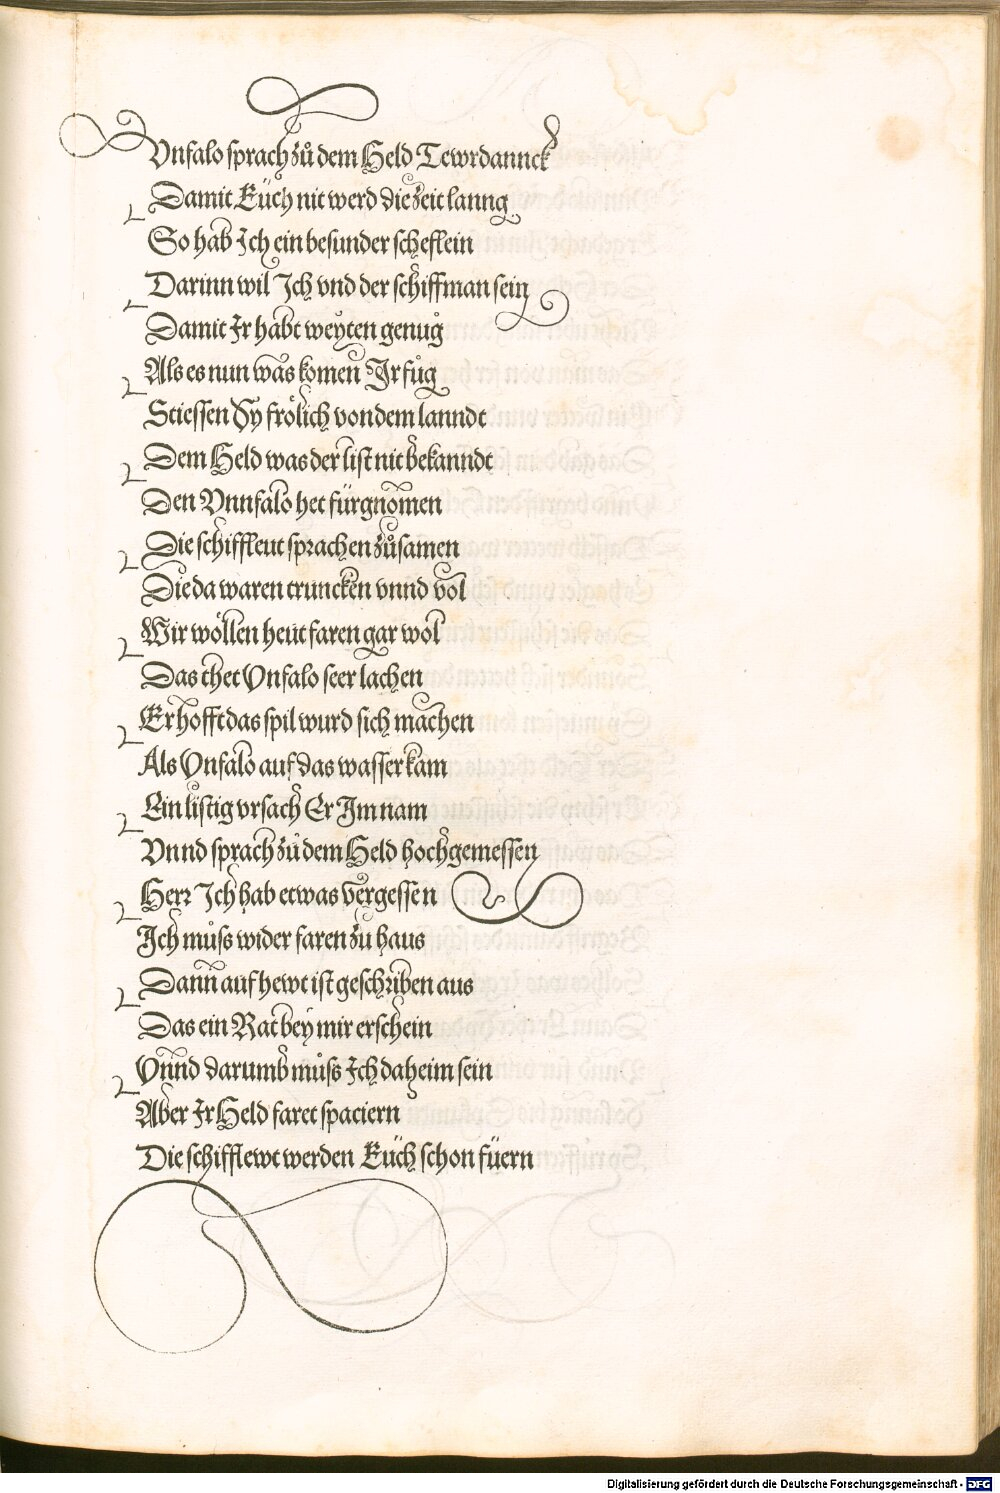 Vnfalo sprach zů dem Held Tewrdannck
Damit Eüch nit werd die zeit lanng
So hab Ich ein besunder scheflein
Darinn wil Ich vnd der schiffman sein
Damit Ir habt weyten genůg
Als es nun was komen Ir fůg
Stiessen Sy frölich von dem lanndt
Dem Held was der list nit bekanndt
Den Vnnfalo het fürgnomen
Die schiffleut sprachen zůsamen
Die da waren truncken vnnd vol
Wir wöllen heut faren gar wol
Das thet Vnfalo seer lachen
Er hofft das spil wurd sich machen
Als Vnfalo auf das wasser kam
Ein listig vrsach Er Im nam
Vnnd sprach zů dem Held hochgemessen
Herr Ich hab etwas vergessen
Ich můss wider faren zu haus
Dann auf hewt ist geschriben aus
Das ein Rat bey mir erschein
Vnnd darumb můss Ich daheim sein
Aber Ir Held faret spaciern
Die schifflewt werden Eüch schon füern
Digitalisierung gefördert durch die Deutsche Forschungsgemeinschaft - DFG